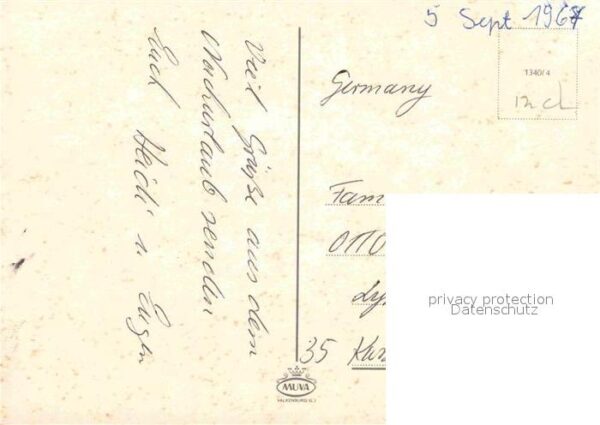 5 Sept 1967
1340/4
Germany
Viel Grüße aus dem
Nachurlaub senden
Euch Heidi u. Eugen
Fam
OTTO
35 Kas
MUVA
VALKENBURG (L.)
privacy protection
Datenschutz